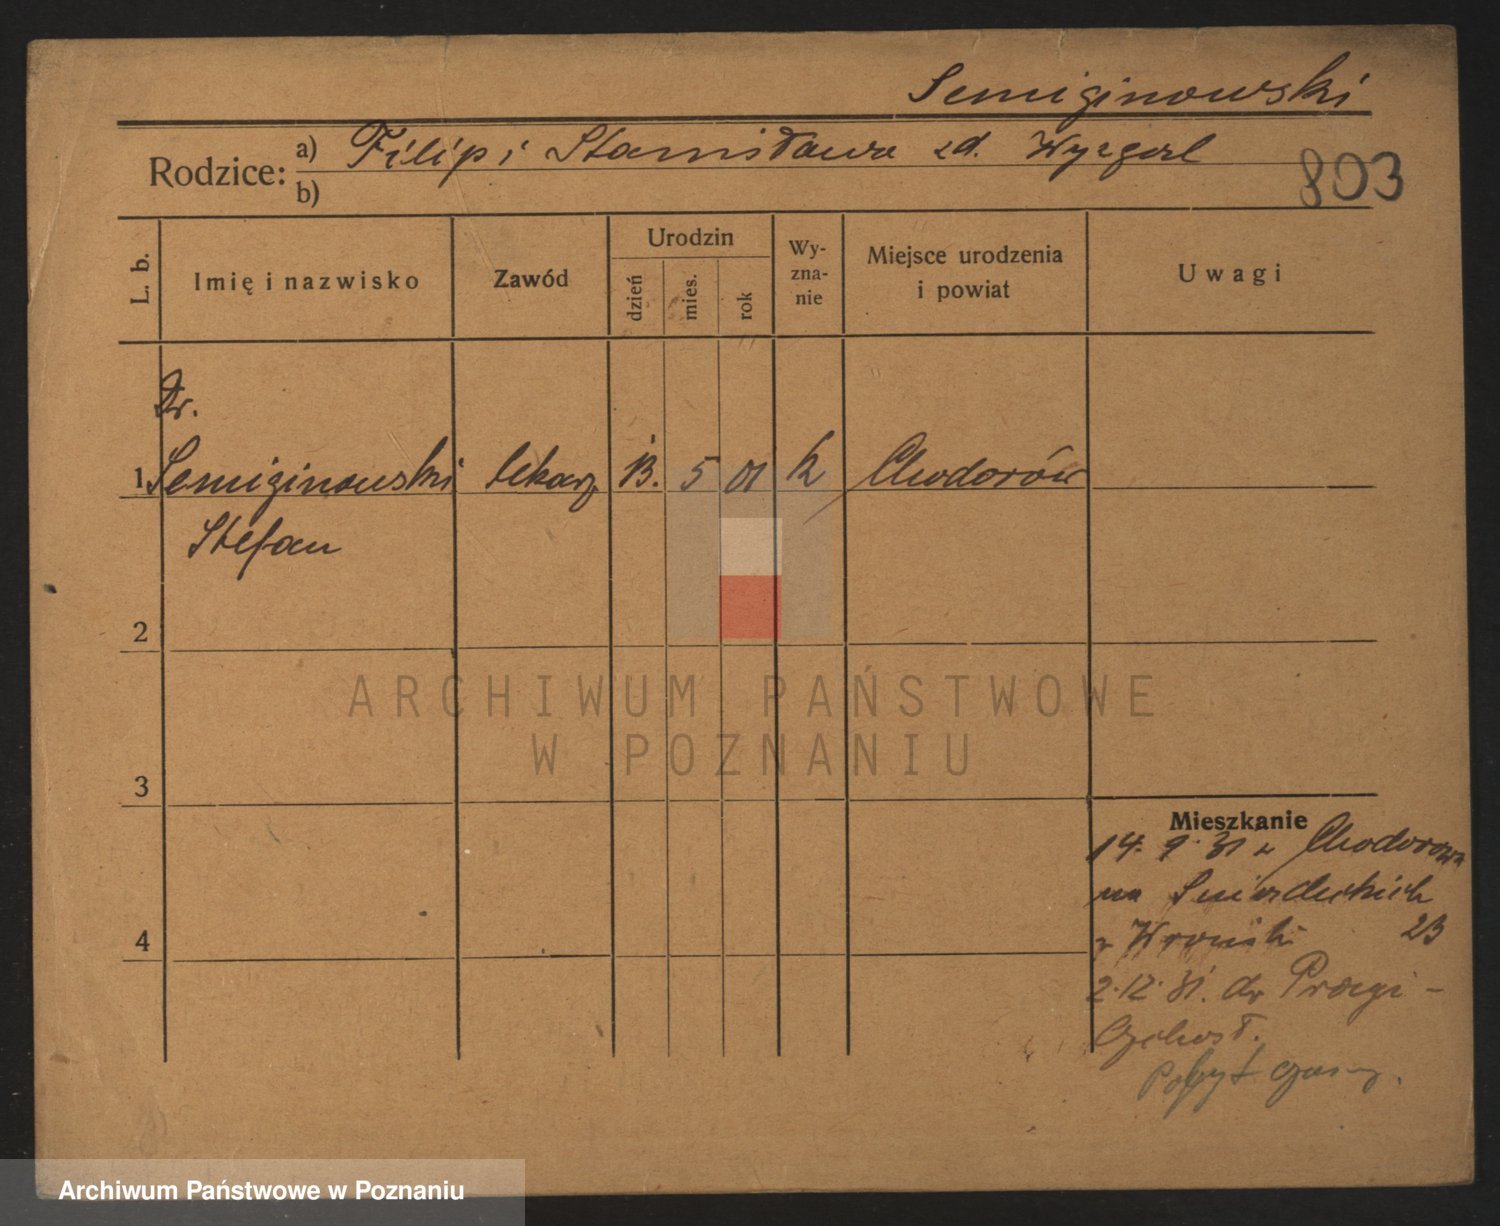 Semiginowski
Rodzice: a) Filip i Stanisława zd. Wyzgol
b)
803
L. b.
Imię i nazwisko
Zawód
Urodzin
dzień
mies.
rok
Wy-
zna-
nie
Miejsce urodzenia
i powiat
Uwagi
Dr.
1 Semiginowski lekarz 13. 5 01 k Chodorów
Stefan
2
ARCHIWUM PAŃSTWOWE
W POZNANIU
3
Mieszkanie
14. 9. 31 z Chodorowa
na Śniadeckich
23
4
2.12.31. do Pragi -
Czchosł.
Pobyt czas.
Archiwum Państwowe w Poznaniu